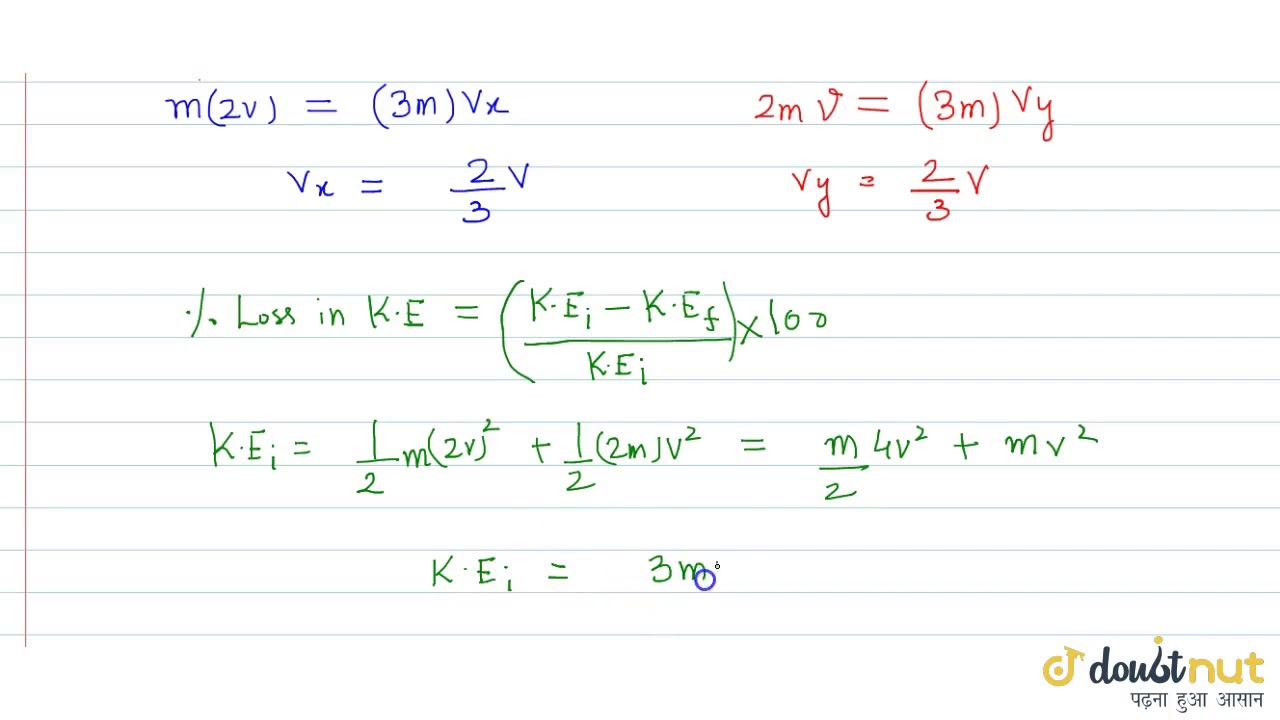 m(2v) = (3m)Vx
2m v = (3m) Vy
Vx = 2/3 V
Vy = 2/3 V
·/. Loss in K·E = (K·Ei − K·Ef / K·Ei) × 100
K·Ei = 1/2 m(2v)² + 1/2 (2m)v² = m/2 4v² + mv²
K·Ei = 3m
doubtnut
पढ़ना हुआ आसान